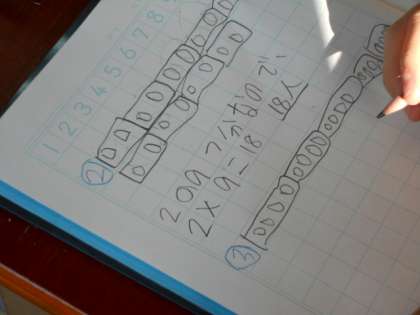 1 2 3 4 5 6 7 8
②
2の9つ分なので
2×9=18 18人
③